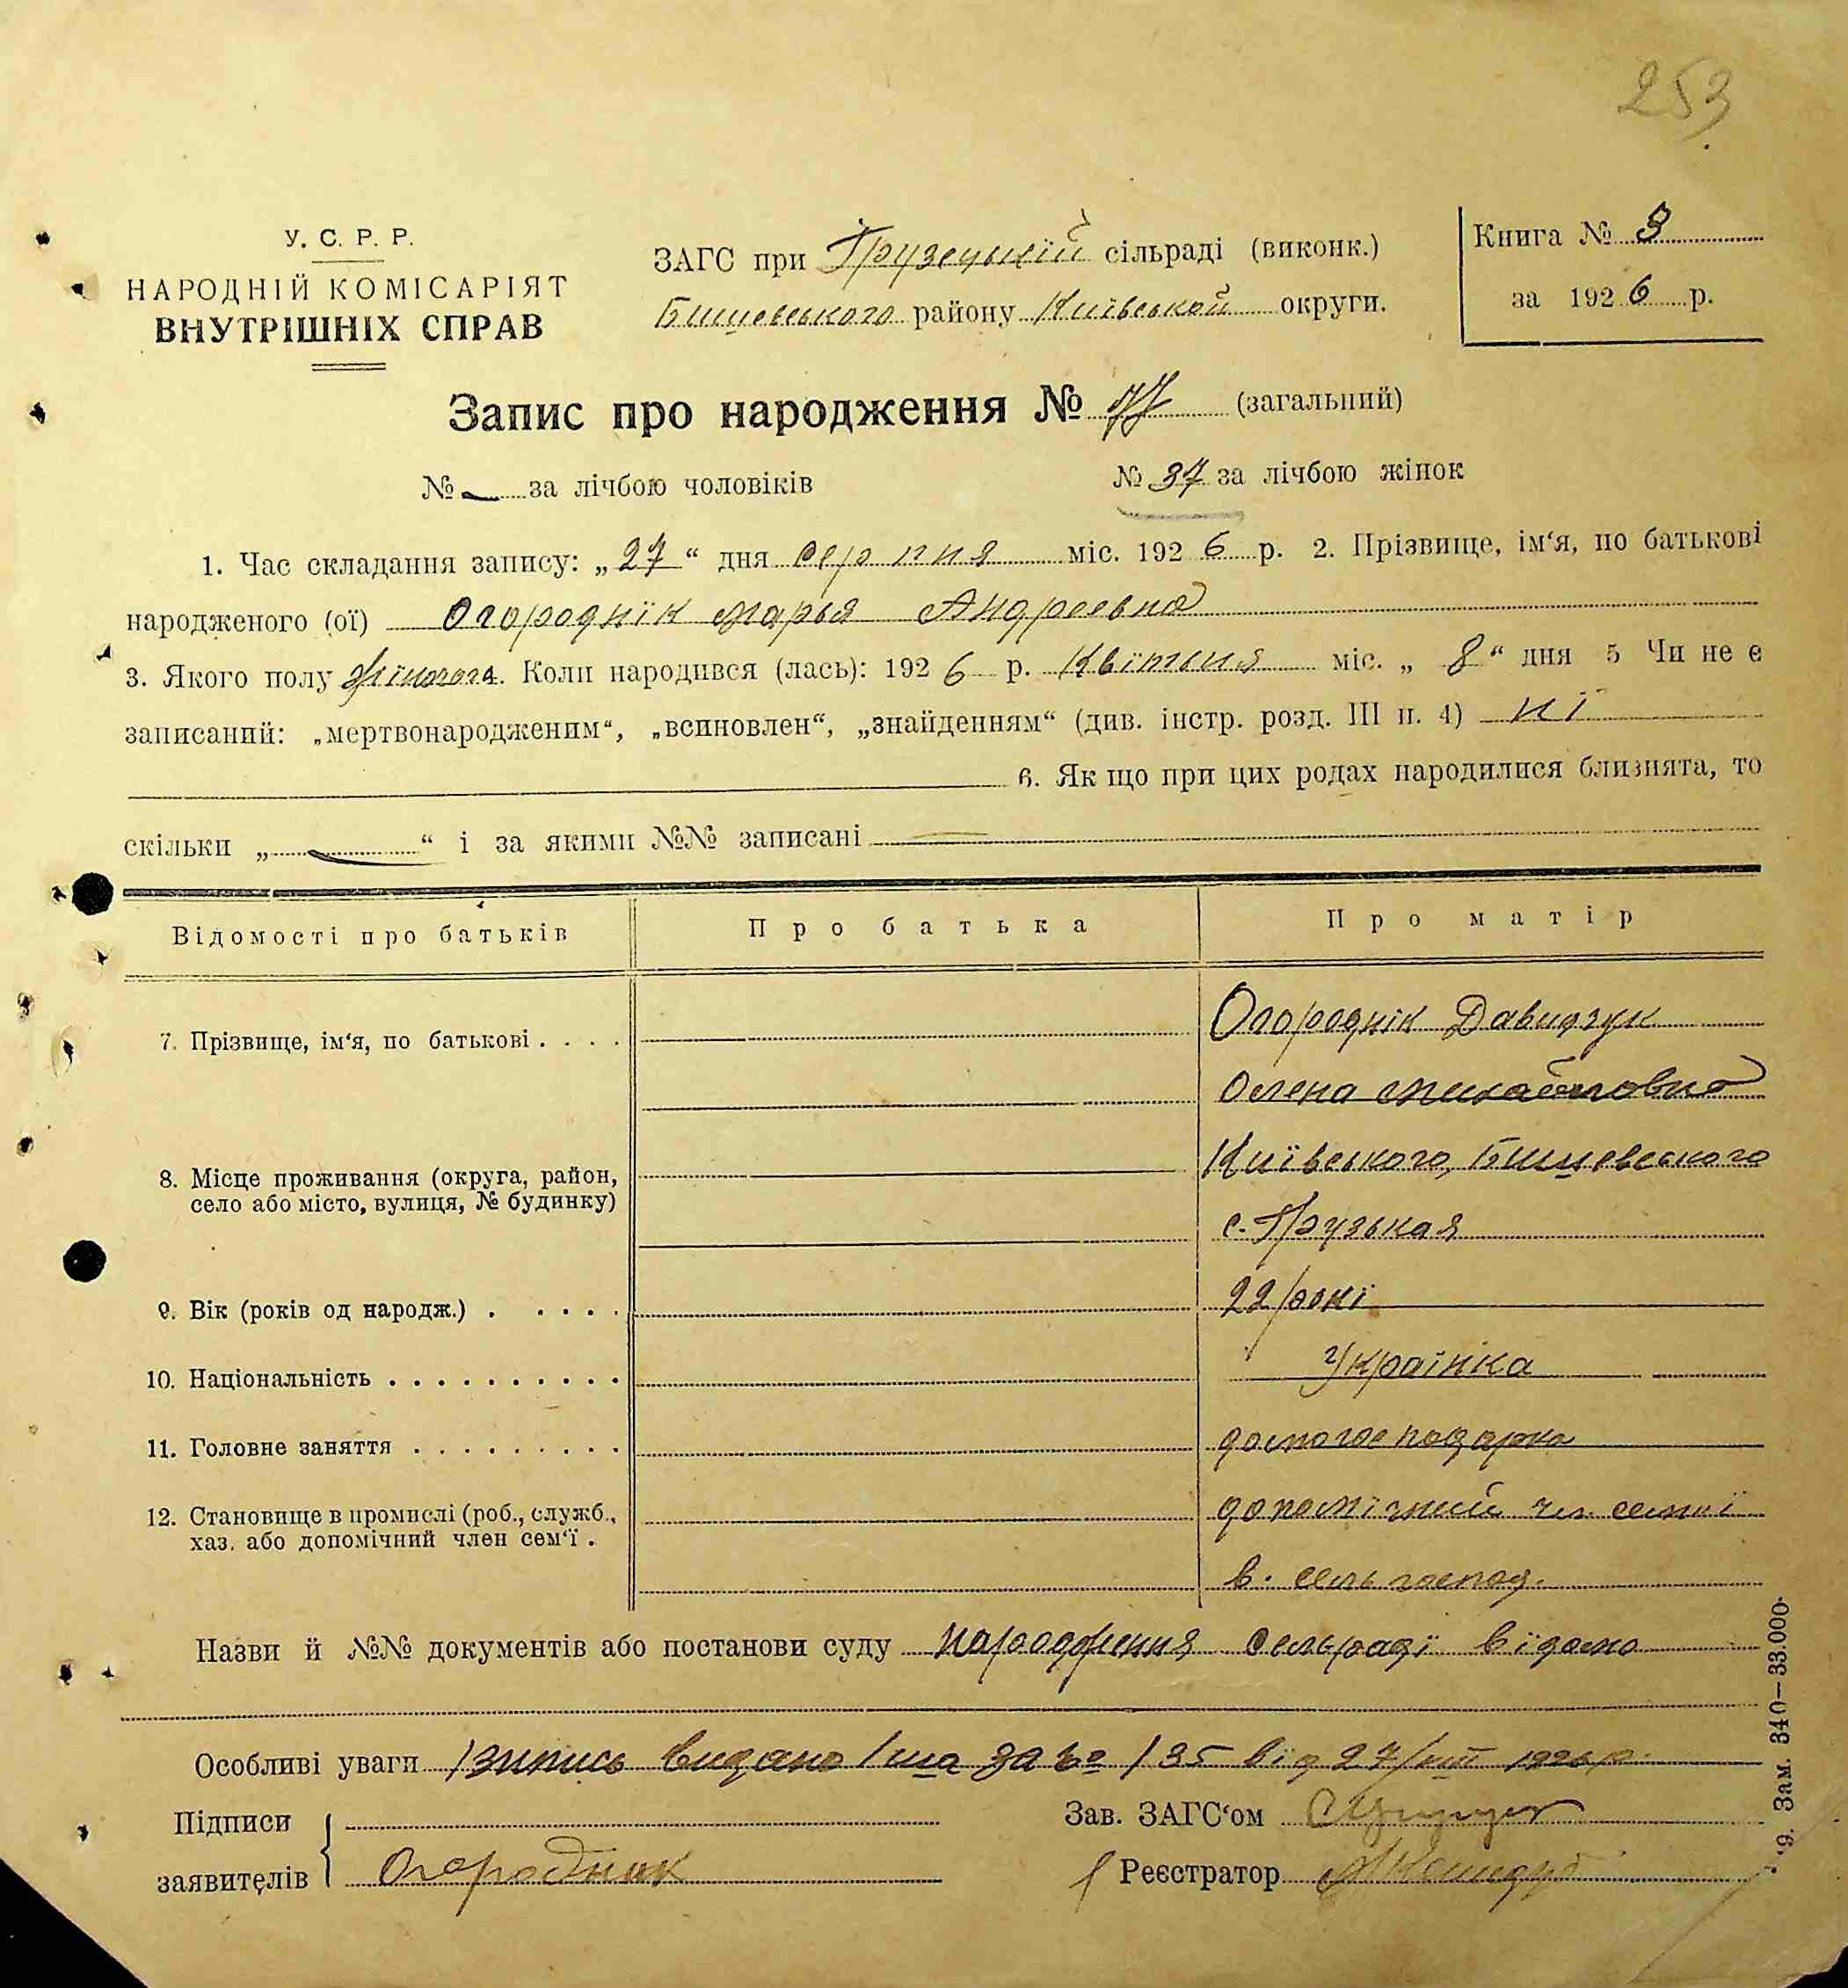 253
У. С. Р. Р.
НАРОДНІЙ КОМІСАРІЯТ
ВНУТРІШНІХ СПРАВ
ЗАГС при Грузецькій сільраді (виконк.)
Бишевського району Київськой округи.
Книга № 3
за 1926 р.
Запис про народження № 77 (загальний)
№ — за лічбою чоловіків № 37 за лічбою жінок
1. Час складання запису: „27“ дня серпня міс. 1926 р. 2. Прізвище, ім‘я, по батькові
народженого (ої) Огороднїк Марья Андреевна
3. Якого полу жіночога. Коли народився (лась): 1926 р. Квітня міс. „8“ дня 5 Чи не є
записаний: „мертвонародженим“, „всиновлен“, „знайденням“ (див. інстр. розд. III п. 4) нї
6. Як що при цих родах народилися близнята, то
скільки „ — “ і за якими №№ записані —
Відомості про батьків Про батька Про матір
7. Прізвище, ім‘я, по батькові . . . . Огороднік Давидзук
Олена Михайловна
8. Місце проживання (округа, район, Київського, Бишевського
село або місто, вулиця, № будинку)
с. Грузькая
9. Вік (років од народж.) . . . . . 22 рокі
10. Національність . . . . . . . . . . Українка
11. Головне заняття . . . . . . . . . домогосподарка
12. Становище в промислі (роб., служб., допомічний чл. семиї
хаз. або допомічний член сем‘ї .
в. сель господ.
Назви й №№ документів або постанови суду народження сельрадї вїдомо
Особливі уваги видано за № 135 від 27/VIII 1926 р.
Підписи
заявителів Огородник
Зав. ЗАГС‘ом
Реєстратор
9. Зам. 340—33.000.